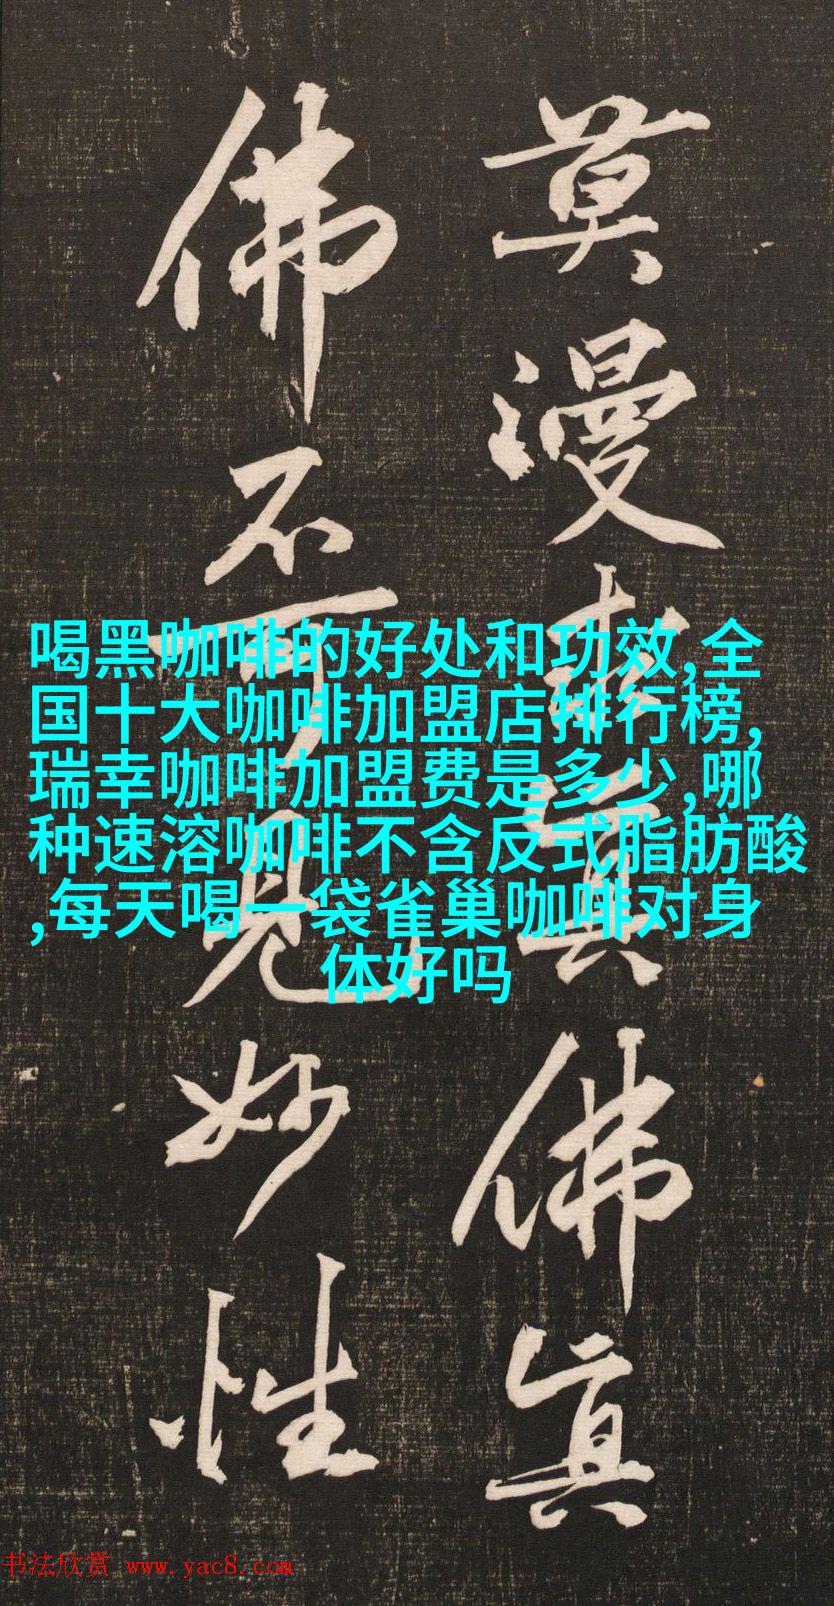 莫漫求真佛真
佛不可见妙性
喝黑咖啡的好处和功效,全
国十大咖啡加盟店排行榜,
瑞幸咖啡加盟费是多少,哪
种速溶咖啡不含反式脂肪酸
,每天喝一袋雀巢咖啡对身
体好吗
书法欣赏 www.yac8.com